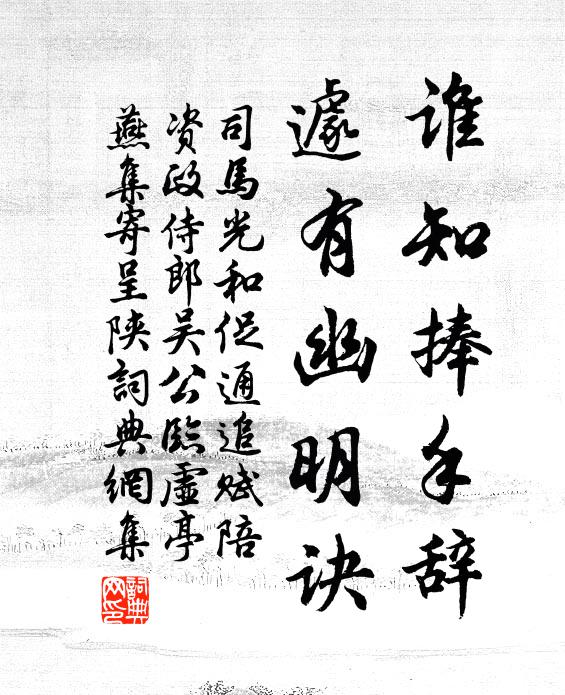 谁知捧手辞
遽有幽明诀
司馬光和促通追赋陪
资政侍郎吴公臨虛亭
燕集寄呈陕詞典網集
詞典
网印